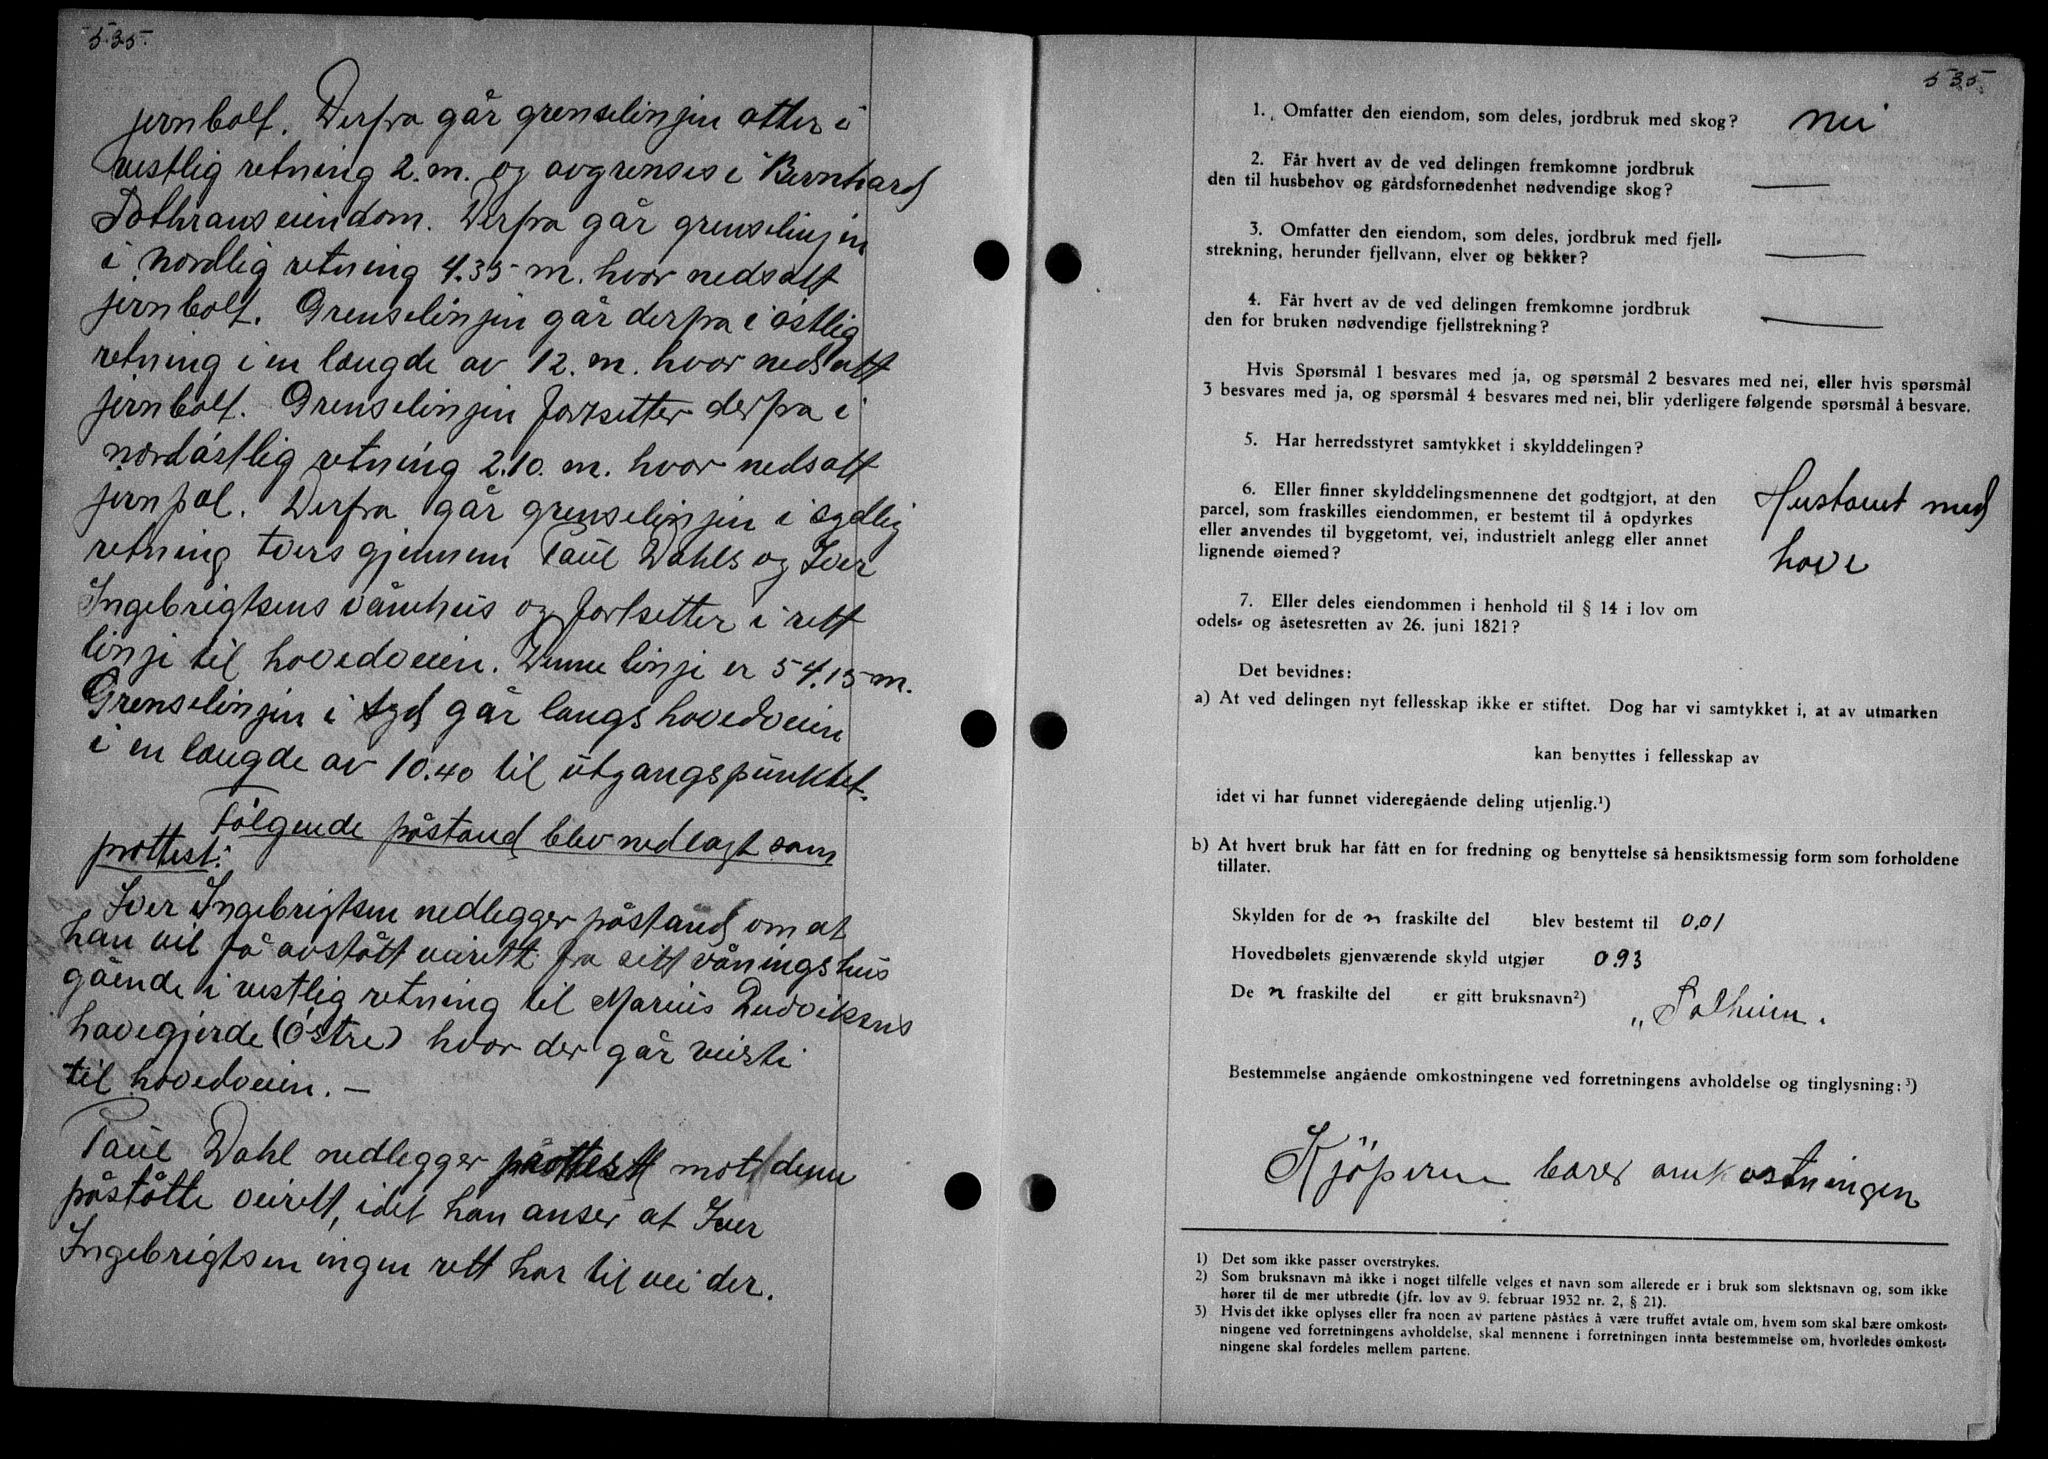 535.
jernbolt. Derfra går grenselinjen atter i
vestlig retning 2. m. og avgrenses i Bernhard
eiendom. Derfra går grenselinjen
i nordlig retning 4.35 m. hvor nedsatt
jernbolt. Grenselinjen går derfra i östlig
retning i en længde av 12. m. hvor nedsatt
jernbolt. Grenselinjen fortsetter derfra i
nordöstlig retning 2.10. m. hvor nedsatt
jernpæl. Derfra går grenselinjen i sydlig
retning tvers gjennem Paul Dahls og Iver
Ingebrigtsens vånehus og fortsetter i rett
linje til hovedveien. Denne linje er 54.15 m.
Grenselinjen i syd går langs hovedveien
i en længde av 10.40 til utgangspunktet.
Fölgende påstand blev nedlagt som
prottest:
Iver Ingebrigtsen nedlegger påstand om at
han vil få avstått veirett fra sitt våningshus
gående i vestlig retning til Marius Ludviksens
havegjerde (Östre) hvor der går veisti
til hovedveien. —
Paul Dahl nedlegger prottest mot denne
påståtte veirett, idet han anser at Iver
Ingebrigtsen ingen rett har til vei der.
535.
1. Omfatter den eiendom, som deles, jordbruk med skog? nei
2. Får hvert av de ved delingen fremkomne jordbruk
den til husbehov og gårdsfornødenhet nødvendige skog? —
3. Omfatter den eiendom, som deles, jordbruk med fjell-
strekning, herunder fjellvann, elver og bekker? —
4. Får hvert av de ved delingen fremkomne jordbruk
den for bruken nødvendige fjellstrekning? —
Hvis Spørsmål 1 besvares med ja, og spørsmål 2 besvares med nei, eller hvis spørsmål
3 besvares med ja, og spørsmål 4 besvares med nei, blir yderligere følgende spørsmål å besvare.
5. Har herredsstyret samtykket i skylddelingen?
6. Eller finner skylddelingsmennene det godtgjort, at den
parcel, som fraskilles eiendommen, er bestemt til å opdyrkes
eller anvendes til byggetomt, vei, industrielt anlegg eller annet
lignende øiemed?
Hustomt med
have
7. Eller deles eiendommen i henhold til § 14 i lov om
odels- og åsetesretten av 26. juni 1821?
Det bevidnes:
a) At ved delingen nyt fellesskap ikke er stiftet. Dog har vi samtykket i, at av utmarken
kan benyttes i fellesskap av
idet vi har funnet videregående deling utjenlig.¹)
b) At hvert bruk har fått en for fredning og benyttelse så hensiktsmessig form som forholdene
tillater.
Skylden for de n fraskilte del blev bestemt til 0,01
Hovedbølets gjenværende skyld utgjør 0.93
De n fraskilte del er gitt bruksnavn²) „Solheim.
Bestemmelse angående omkostningene ved forretningens avholdelse og tinglysning:³)
Kjöperen bærer omkostningen
1) Det som ikke passer overstrykes.
2) Som bruksnavn må ikke i noget tilfelle velges et navn som allerede er i bruk som slektsnavn og, som ikke
hører til de mer utbredte (jfr. lov av 9. februar 1932 nr. 2, § 21).
3) Hvis det ikke oplyses eller fra noen av partene påståes å være truffet avtale om, hvem som skal bære omkost-
ningene ved forretningens avholdelse, skal mennene i forretningen innta bestemmelse om, hvorledes omkost-
ningene skal fordeles mellem partene.